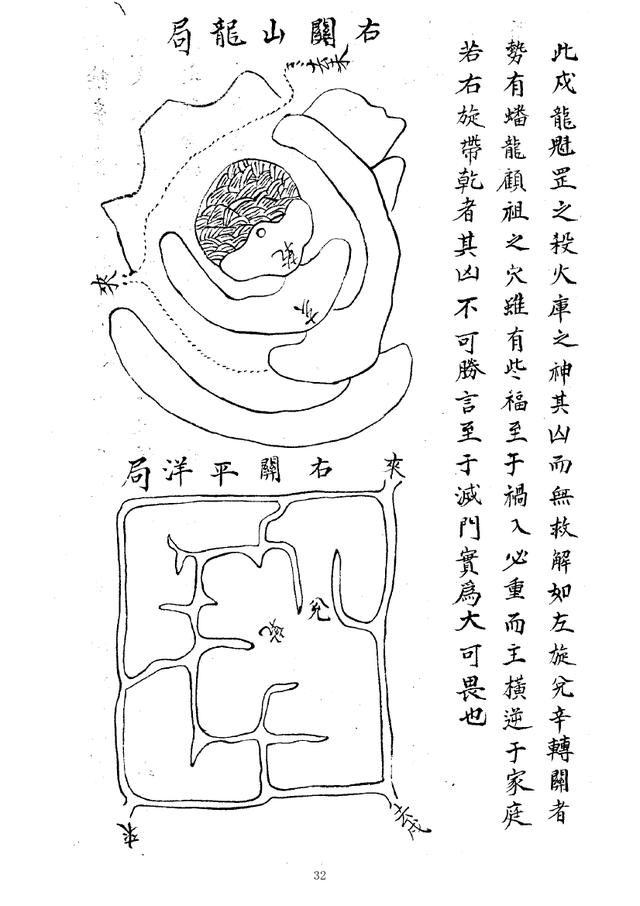 此戍龍魁罡之殺火庫之神其凶而無救解如左旋兌辛轉關者
勢有蟠龍顧祖之穴雖有些福至于禍入必重而主橫逆于家庭
若右旋帶乾者其凶不可勝言至于滅門實爲大可畏也
右關山龍局
去来
來
右關平洋局
來
兌
來
去戍
32